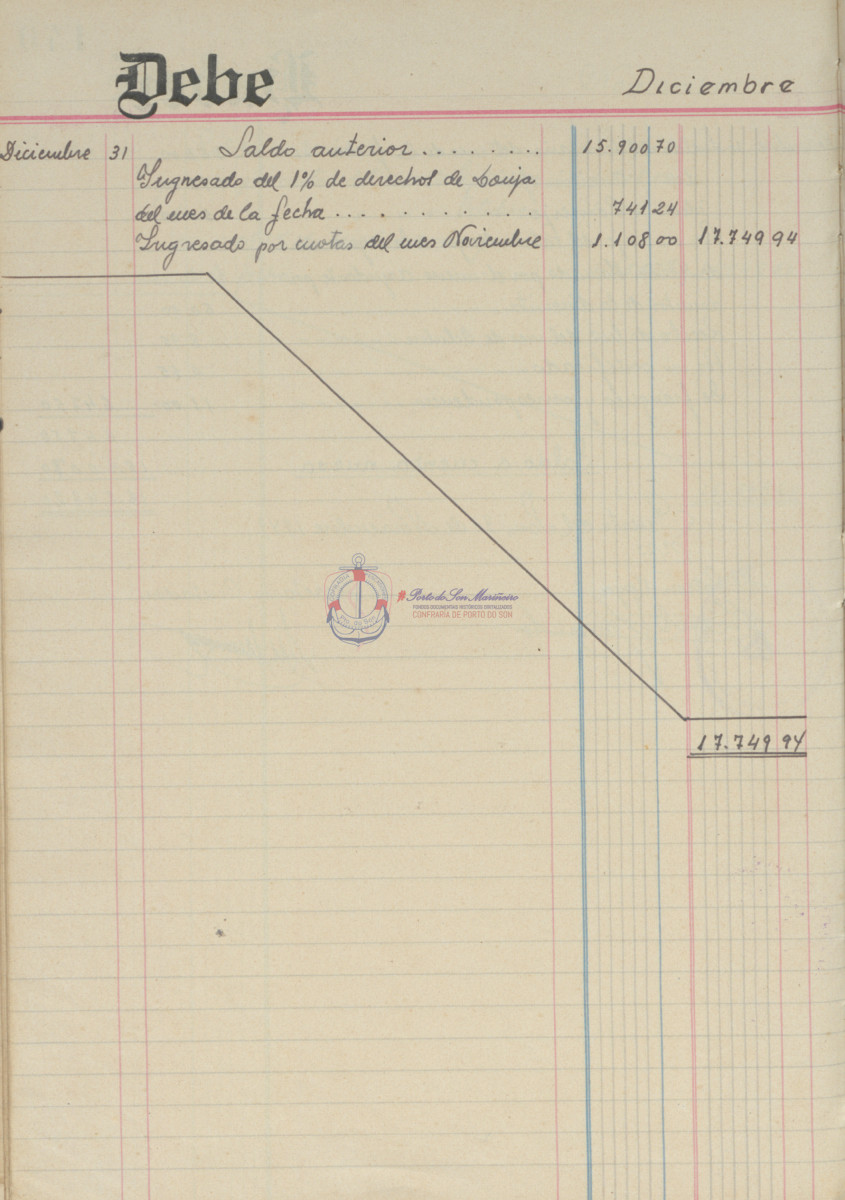 Debe
Diciembre
Diciembre 31 Saldo anterior . . . . . . . . 15.900 70
Ingresado del 1% de derechos de Lonja
del mes de la fecha . . . . . . . . . . . . 741 24
Ingresado por cuotas del mes Noviembre 1.108 00 17.749 94
CONFRARÍA
#Porto do Son Mariñeiro
FONDOS DOCUMENTAIS HISTÓRICOS DIXITALIZADOS
CONFRARÍA DE PORTO DO SON
17.749 94